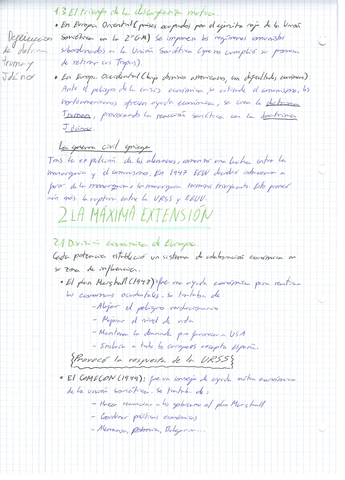 1.3 El triunfo de la desconfianza mutua.
• En Europa Oriental (países ocupados por el ejército rojo de la Unión
Soviética en la 2ª GM) Se imponen los regímenes comunistas
subordinados a la Unión Soviética (quien cumplió su promesa
de retirar sus tropas).
de doctrina
truman y
Jdánov
• En Europa Occidental (bajo dominio americano,
Ante el peligro de la crisis económica, se extiende el comunismo, los
norteamericanos ofrecen ayuda económica, se crea la doctrina
Truman, provocando la reacción soviética con la doctrina
Jdánov.
La guerra civil griega
Tras la expulsión de los alemanes, comenzó una lucha entre la
monarquía y el comunismo. En 1947 EEUU decide intervenir a
favor de la monarquía y la monarquía termina triunfando. Esto provocó
aún más la ruptura entre la URSS y EEUU.
2 LA MÁXIMA EXTENSIÓN
2.1 División económica de Europa.
Cada potencia estableció un sistema de colaboración económica en
su zona de influencia.
• El plan Marshall (1947): fue una ayuda económica para reactivar
las economías occidentales. Se trataba de:
- Alejar el peligro revolucionario
- Mejorar el nivel de vida
- Mantener la demanda que favorecía a USA
- Incluir a todo los europeos excepto España.
{Provocó la respuesta de la URSS}
• El COMECON (1949): fue un consejo de ayuda mutua económica
de la unión soviética. Se trataba de:
- Hacer renunciar a los gobiernos al plan Marshall
- Coordinar políticas económicas
- Alemania, Polonia, Bulgaria...